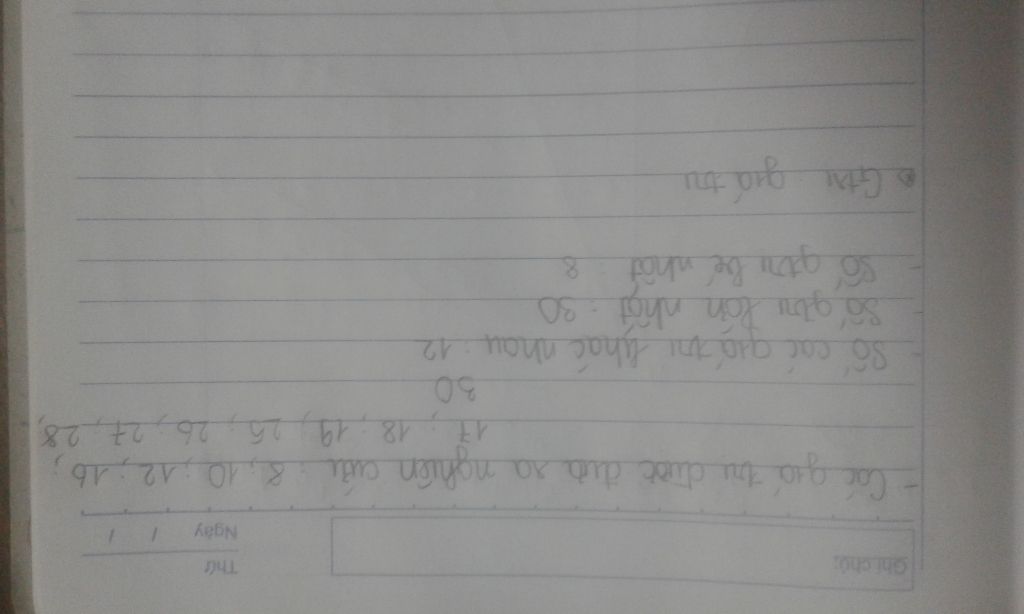 Ghi chú:
Thứ
Ngày / /
- Các giá trị được đưa ra nghiên cứu : 8 ; 10 ; 12 ; 16 ;
17 ; 18 ; 19 ; 25 ; 26 ; 27 ; 28 ;
30
- Số các giá trị khác nhau : 12
- Số gtrị lớn nhất : 30
- Số gtrị bé nhất : 8
Gtrị : giá trị